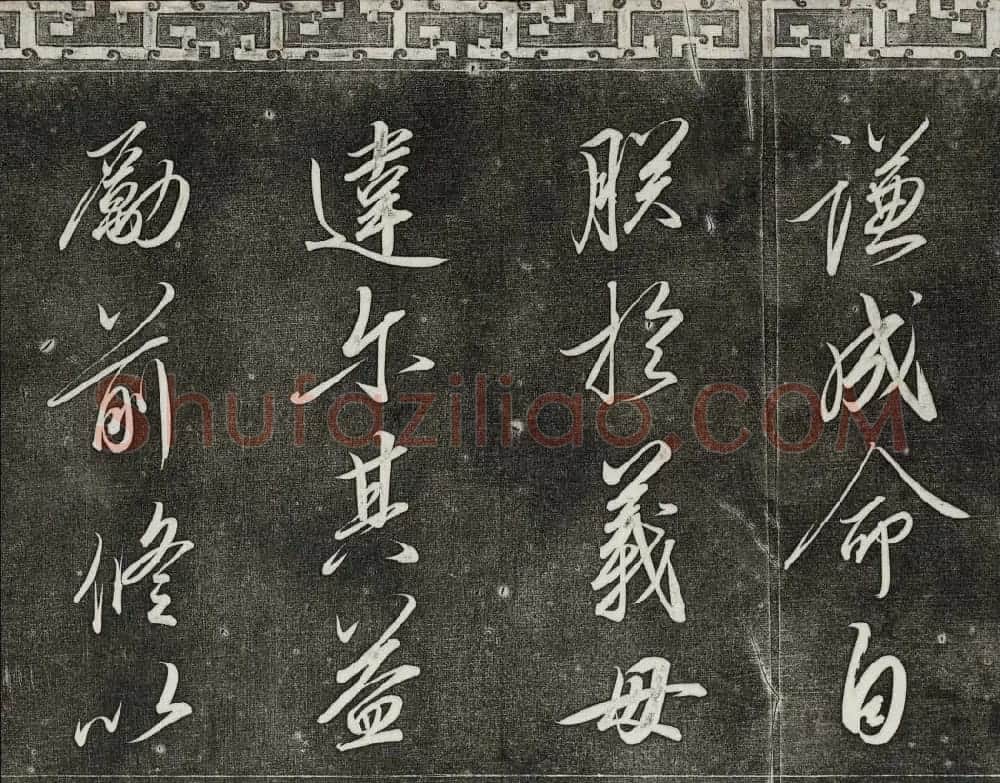 謙成命自
朕於義毋
違尔其益
勵前修以
Shufaziliao.COM